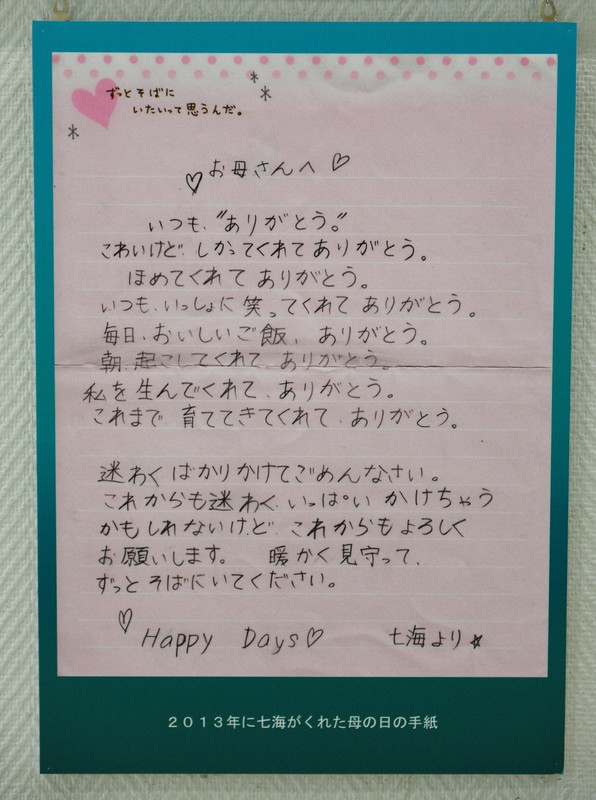 ずっとそばに
いたいって思うんだ。
♡お母さんへ♡
いつも、"ありがとう。"
こわいけど、しかってくれてありがとう。
ほめてくれて ありがとう。
いつも、いっしょに笑ってくれて ありがとう。
毎日、おいしいご飯、ありがとう。
朝、起こしてくれて、ありがとう。
私を生んでくれて、ありがとう。
これまで 育ててきてくれて、ありがとう。
迷わくばかりかけてごめんなさい。
これからも迷わく、いっぱい かけちゃう
かもしれないけど、これからもよろしく
お願いします。 暖かく見守って、
ずっとそばにいてください。
♡Happy Days♡ 七海より☆
2013年に七海がくれた母の日の手紙